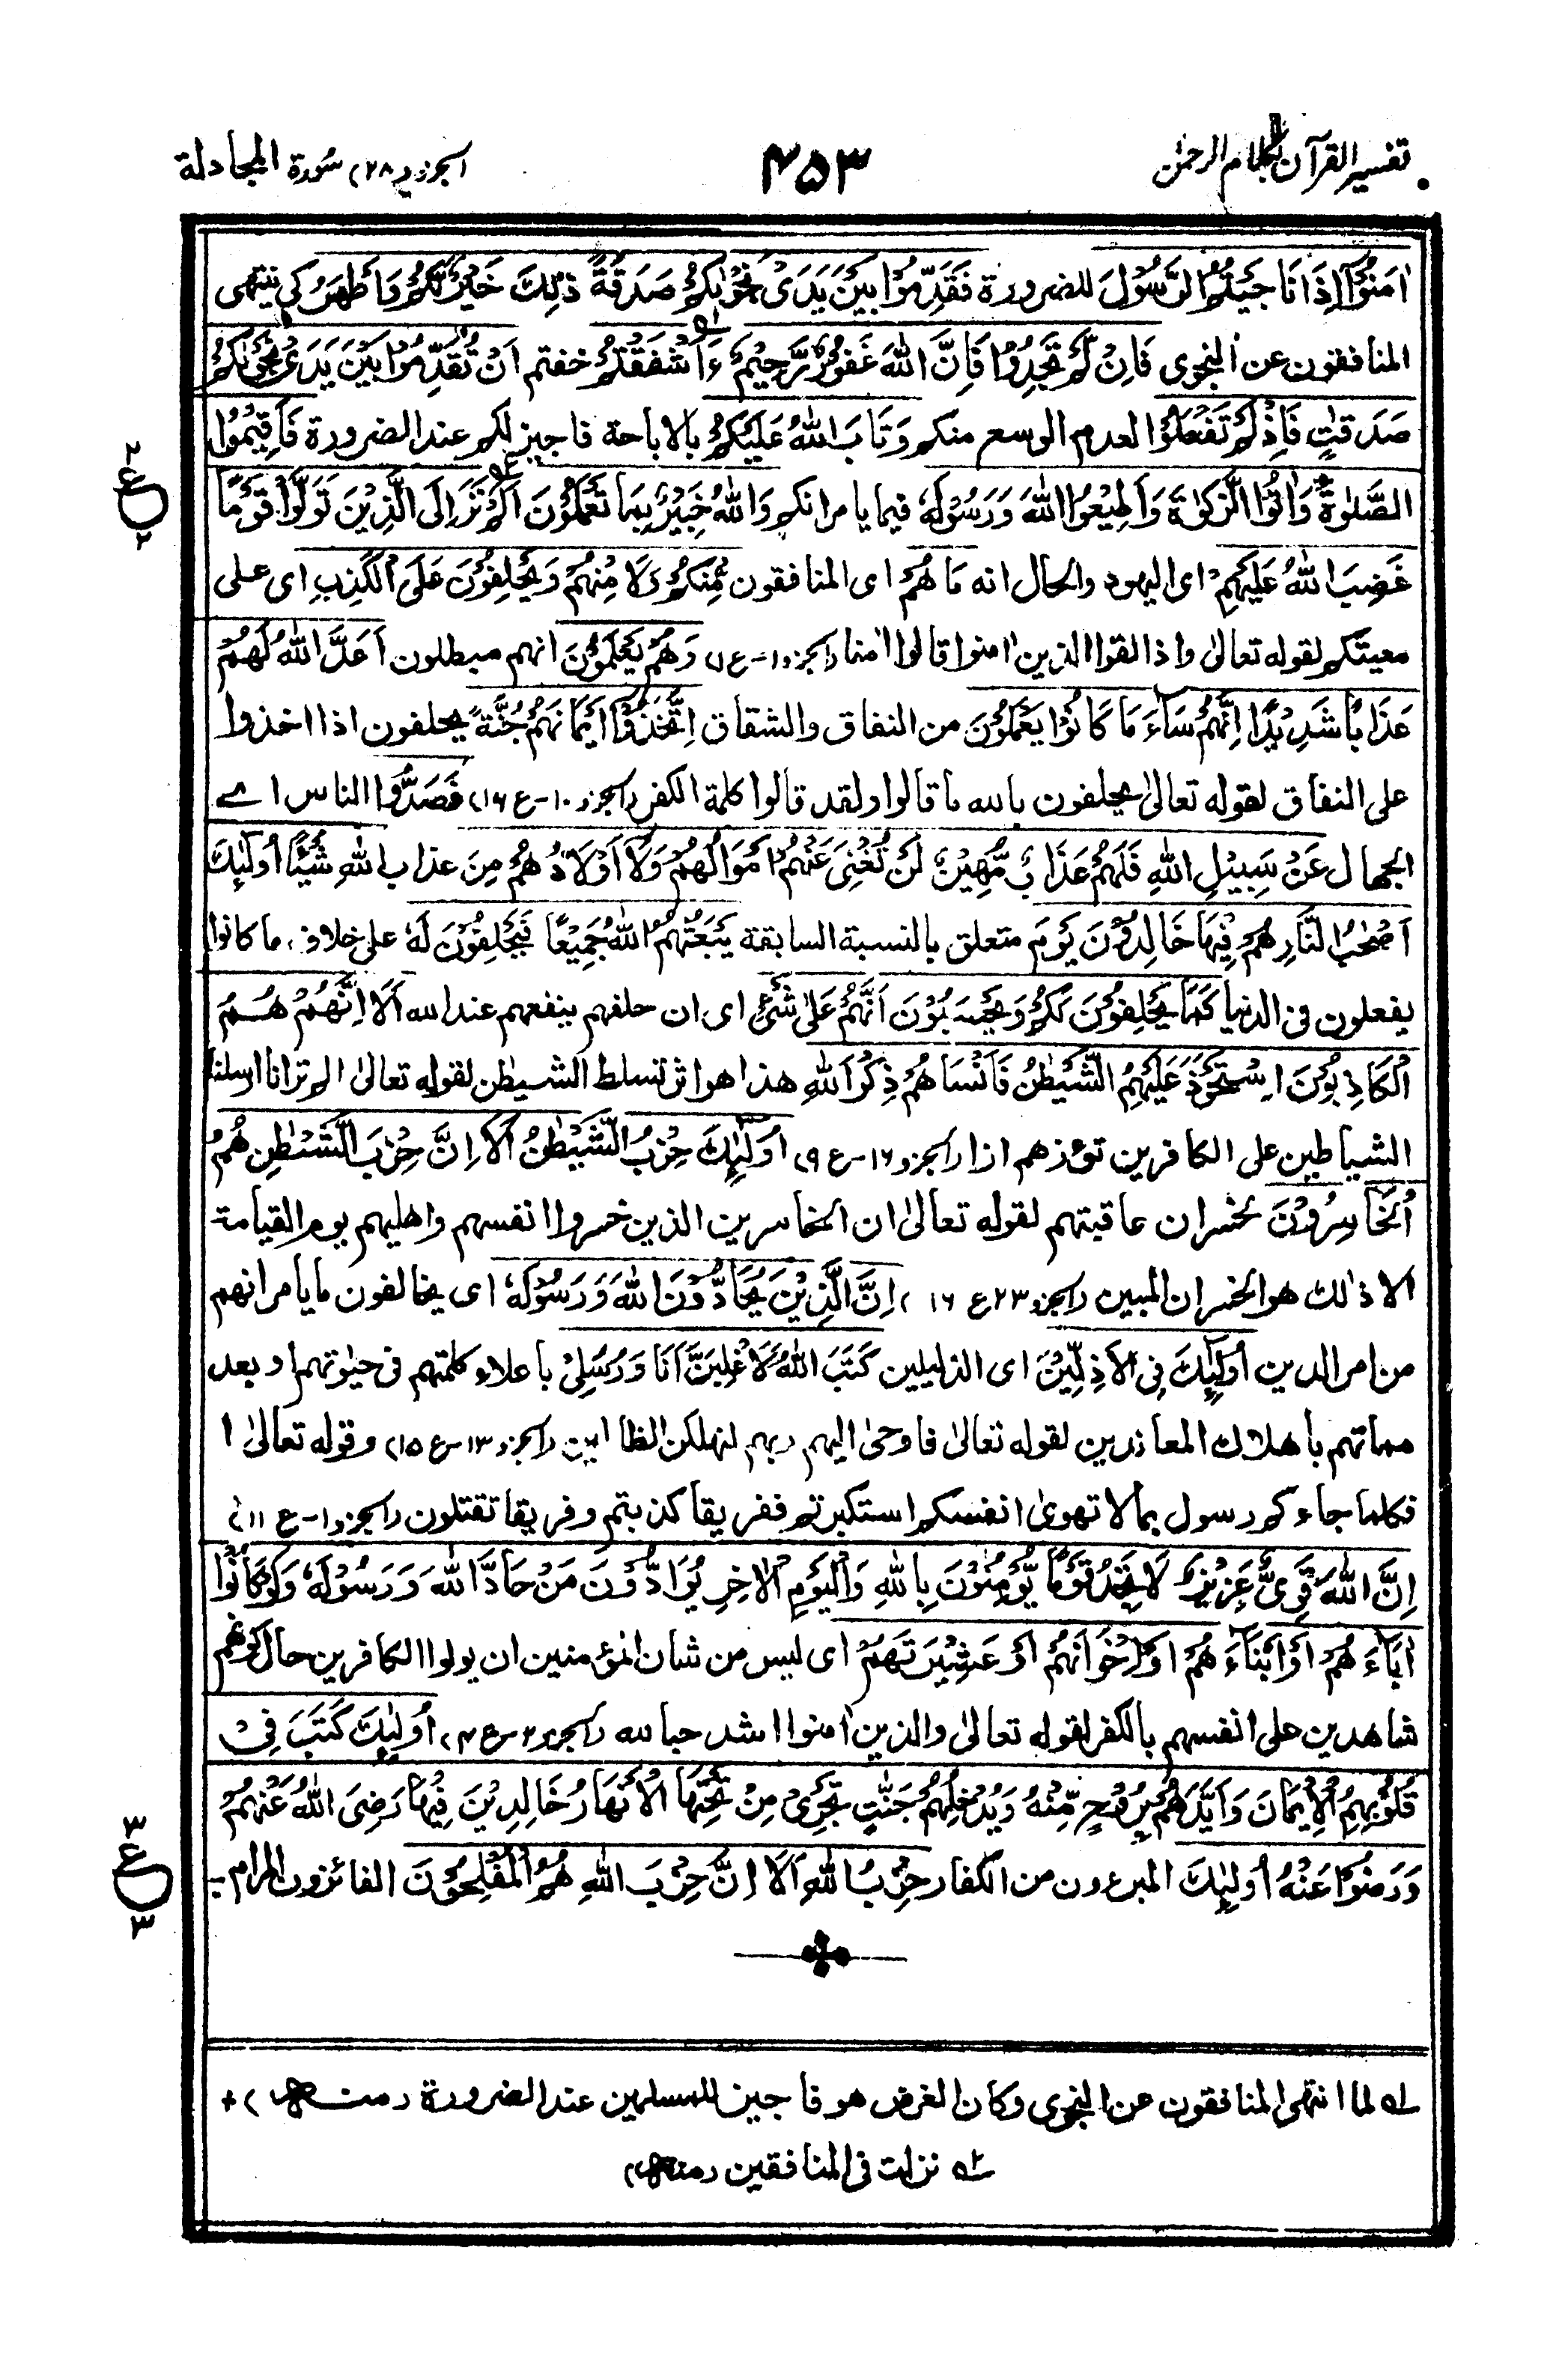 تفسير القرآن بكلام الرحمٰن
٣٥٣
الجزو (٢٨) سُورة المجادلة
اٰمَنُوْٓا اِذَا نَاجَيْتُمُ الرَّسُوْلَ للضرورة فَقَدِّمُوْا بَيْنَ يَدَيْ نَجْوٰىكُمْ صَدَقَةً ذٰلِكَ خَيْرٌ لَّكُمْ وَاَطْهَرُ كى ينتهى
المنافقون عن النجوى فَاِنْ لَّمْ تَجِدُوْا فَاِنَّ اللّٰهَ غَفُوْرٌ رَّحِيْمٌ ءَاَشْفَقْتُمْ خفتم اَنْ تُقَدِّمُوْا بَيْنَ يَدَيْ نَجْوٰىكُمْ
صَدَقٰتٍ فَاِذْ لَمْ تَفْعَلُوْا لعدم الوسع منكم وَتَابَ اللّٰهُ عَلَيْكُمْ بالاباحة فاجيز لكم عند الضرورة فَاَقِيْمُوا
الصَّلٰوةَ وَاٰتُوا الزَّكٰوةَ وَاَطِيْعُوا اللّٰهَ وَرَسُوْلَهٗ فيما يامرانكم وَاللّٰهُ خَبِيْرٌۢ بِمَا تَعْمَلُوْنَ اَلَمْ تَرَ اِلَى الَّذِيْنَ تَوَلَّوْا قَوْمًا
غَضِبَ اللّٰهُ عَلَيْهِمْ اى اليهود والحال انه مَا هُمْ اى المنافقون مِّنْكُمْ وَلَا مِنْهُمْ وَيَحْلِفُوْنَ عَلَى الْكَذِبِ اى على
معيتكم لقوله تعالىٰ واذا لقوا الذين اٰمنوا قالوا اٰمنا (الجزو ١-ع ٢) وَهُمْ يَعْلَمُوْنَ انهم مبطلون اَعَدَّ اللّٰهُ لَهُمْ
عَذَابًا شَدِيْدًا اِنَّهُمْ سَآءَ مَا كَانُوْا يَعْمَلُوْنَ من النفاق والشقاق اِتَّخَذُوْٓا اَيْمَانَهُمْ جُنَّةً يحلفون اذا اخذوا
على النفاق لقوله تعالىٰ يحلفون بالله ما قالوا ولقد قالوا كلمة الكفر (الجزو ١٠-ع ١٦) فَصَدُّوا الناس اے
الجهال عَنْ سَبِيْلِ اللّٰهِ فَلَهُمْ عَذَابٌ مُّهِيْنٌ لَنْ تُغْنِيَ عَنْهُمْ اَمْوَالُهُمْ وَلَآ اَوْلَادُهُمْ مِنَ عذاب اللّٰهِ شَيْئًا اُولٰٓئِكَ
اَصْحٰبُ النَّارِ هُمْ فِيْهَا خَالِدُوْنَ يَوْمَ متعلق بالنسبة السابقة يَبْعَثُهُمُ اللّٰهُ جَمِيْعًا فَيَحْلِفُوْنَ لَهٗ على خلاف ما كانوا
يفعلون فى الدنيا كَمَا يَحْلِفُوْنَ لَكُمْ وَيَحْسَبُوْنَ اَنَّهُمْ عَلٰى شَيْءٍ اى ان حلفهم ينفعهم عند الله اَلَآ اِنَّهُمْ هُمُ
الْكَاذِبُوْنَ اِسْتَحْوَذَ عَلَيْهِمُ الشَّيْطٰنُ فَاَنْسَاهُمْ ذِكْرَ اللّٰهِ هذا هو اثر تسلط الشيطٰن لقوله تعالىٰ الم تر انا ارسلنا
الشياطين على الكافرين تؤزهم ازا (الجزو ١٦-ع ٩) اُولٰٓئِكَ حِزْبُ الشَّيْطٰنِ اَلَآ اِنَّ حِزْبَ الشَّيْطٰنِ هُمُ
الْخَاسِرُوْنَ لخسران عاقبتهم لقوله تعالىٰ ان الخاسرين الذين خسروا انفسهم واهليهم يوم القيامة
الا ذٰلك هو الخسران المبين (الجزو ٢٣ ع ١٦) اِنَّ الَّذِيْنَ يُحَآدُّوْنَ اللّٰهَ وَرَسُوْلَهٗ اى يخالفون ما يامرانهم
من امر الدين اُولٰٓئِكَ فِى الْاَذَلِّيْنَ اى الذليلين كَتَبَ اللّٰهُ لَاَغْلِبَنَّ اَنَا وَرُسُلِيْ باعلاء كلمتهم فى حيٰوتهم او بعد
مماتهم باهلاك المعاندين لقوله تعالىٰ فاوحىٰ اليهم ربهم لنهلكن الظالمين (الجزو ١٣-ع ١٥) وقوله تعالىٰ ا
فكلما جاءكم رسول بما لا تهوىٰ انفسكم استكبرتم ففريقا كذبتم وفريقا تقتلون (الجزو ١-ع ١١)
اِنَّ اللّٰهَ قَوِيٌّ عَزِيْزٌ لَا تَجِدُ قَوْمًا يُّؤْمِنُوْنَ بِاللّٰهِ وَالْيَوْمِ الْاٰخِرِ يُوَآدُّوْنَ مَنْ حَآدَّ اللّٰهَ وَرَسُوْلَهٗ وَلَوْ كَانُوْٓا
اٰبَآءَهُمْ اَوْ اَبْنَآءَهُمْ اَوْ اِخْوَانَهُمْ اَوْ عَشِيْرَتَهُمْ اى ليس من شان المؤمنين ان يولوا الكافرين حال كونهم
شاهدين على انفسهم بالكفر لقوله تعالىٰ والذين اٰمنوا اشد حبا لله (الجزو ٢-ع ٤) اُولٰٓئِكَ كَتَبَ فِيْ
قُلُوْبِهِمُ الْاِيْمَانَ وَاَيَّدَهُمْ بِرُوْحٍ مِّنْهُ وَيُدْخِلُهُمْ جَنّٰتٍ تَجْرِيْ مِنْ تَحْتِهَا الْاَنْهَارُ خَالِدِيْنَ فِيْهَا رَضِيَ اللّٰهُ عَنْهُمْ
وَرَضُوْا عَنْهُ اُولٰٓئِكَ المبرءون من الكفار حِزْبُ اللّٰهِ اَلَآ اِنَّ حِزْبَ اللّٰهِ هُمُ الْمُفْلِحُوْنَ الفائزون المرام -
٢
ع
٢
٣
ع
٣
ـ١ـه لما انتهى المنافقون عن النجوى وكان الغرض هو فاجيز للمسلمين عند الضرورة (منه) +
ـ٢ـه نزلت فى المنافقين (منه)